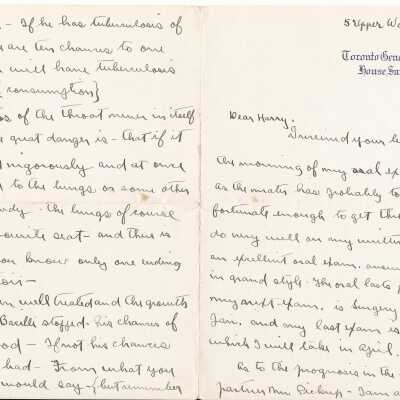 - If he has tuberculosis of
are ten chances to one
will have tuberculosis
consumption}
of the throat never in itself
great danger is - that if it
vigorously and at once
to the lungs or some other
body - the lungs of course
favourite seat - and there is
know only one ending
well treated and the growth
Bacilli stopped - his chances of
good - If not his chances
had - From what you
would say - but remember
5 Upper Wo
Toronto Gene
House Su
Dear Harry,
I received your le
the morning of my oral ex
as the mater has probably to
fortunate enough to get th
do very well on my writte
an excellent oral exam, answ
in grand style. The oral lasts
my next exam, is Surgery
Jan, and my last exam is
which I will take in April.
As to the prognosis in the
partner Mr. Pickup - I am a